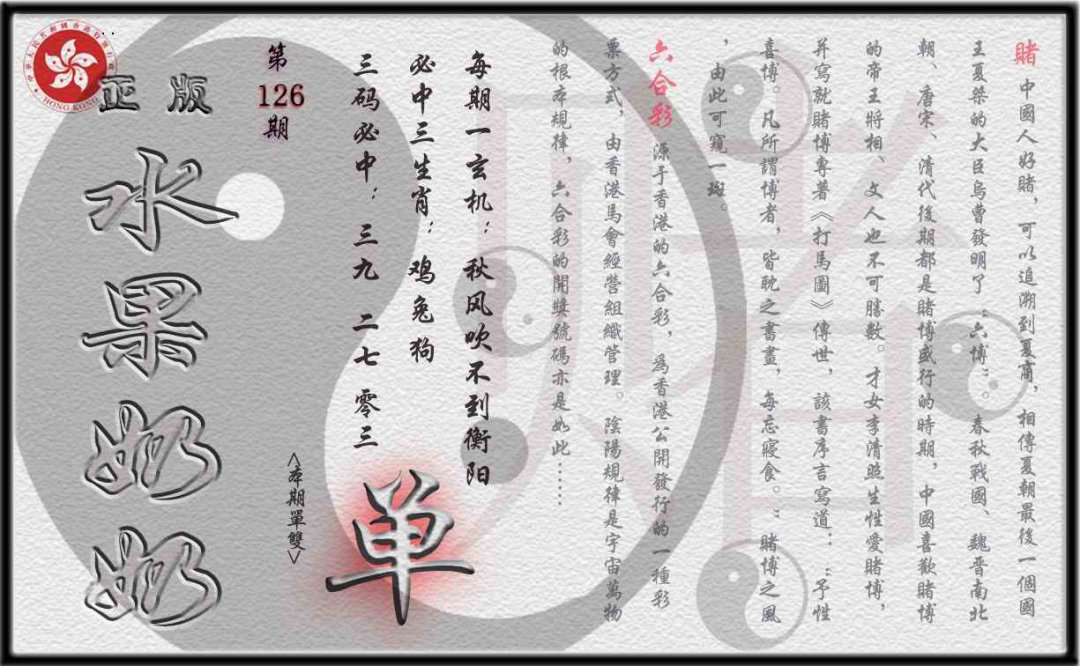 賭 中國人好賭，可以追溯到夏商，相傳夏朝最後一個國
王夏桀的大臣烏曹發明了“六博”。春秋戰國、魏晉南北
朝、唐宋、清代後期都是賭博盛行的時期，中國喜歡賭博
的帝王將相、文人也不可勝數。才女李清照生性愛賭博，
并寫就賭博專著《打馬圖》傳世，該書序言寫道：“予性
喜博。凡所謂博者，皆耽之書畫，每忘寢食。”賭博之風
，由此可窺一斑。
六合彩 源于香港的六合彩，為香港公開發行的一種彩
票方式，由香港馬會經營組織管理。陰陽規律是宇宙萬物
的根本規律，六合彩的開獎號碼亦是如此……
每期一玄机：秋风吹不到衡阳
必中三生肖：鸡兔狗
三码必中：三九 二七 零三
单
<本期單雙>
第
126
期
正版
水果奶奶
HONG KONG